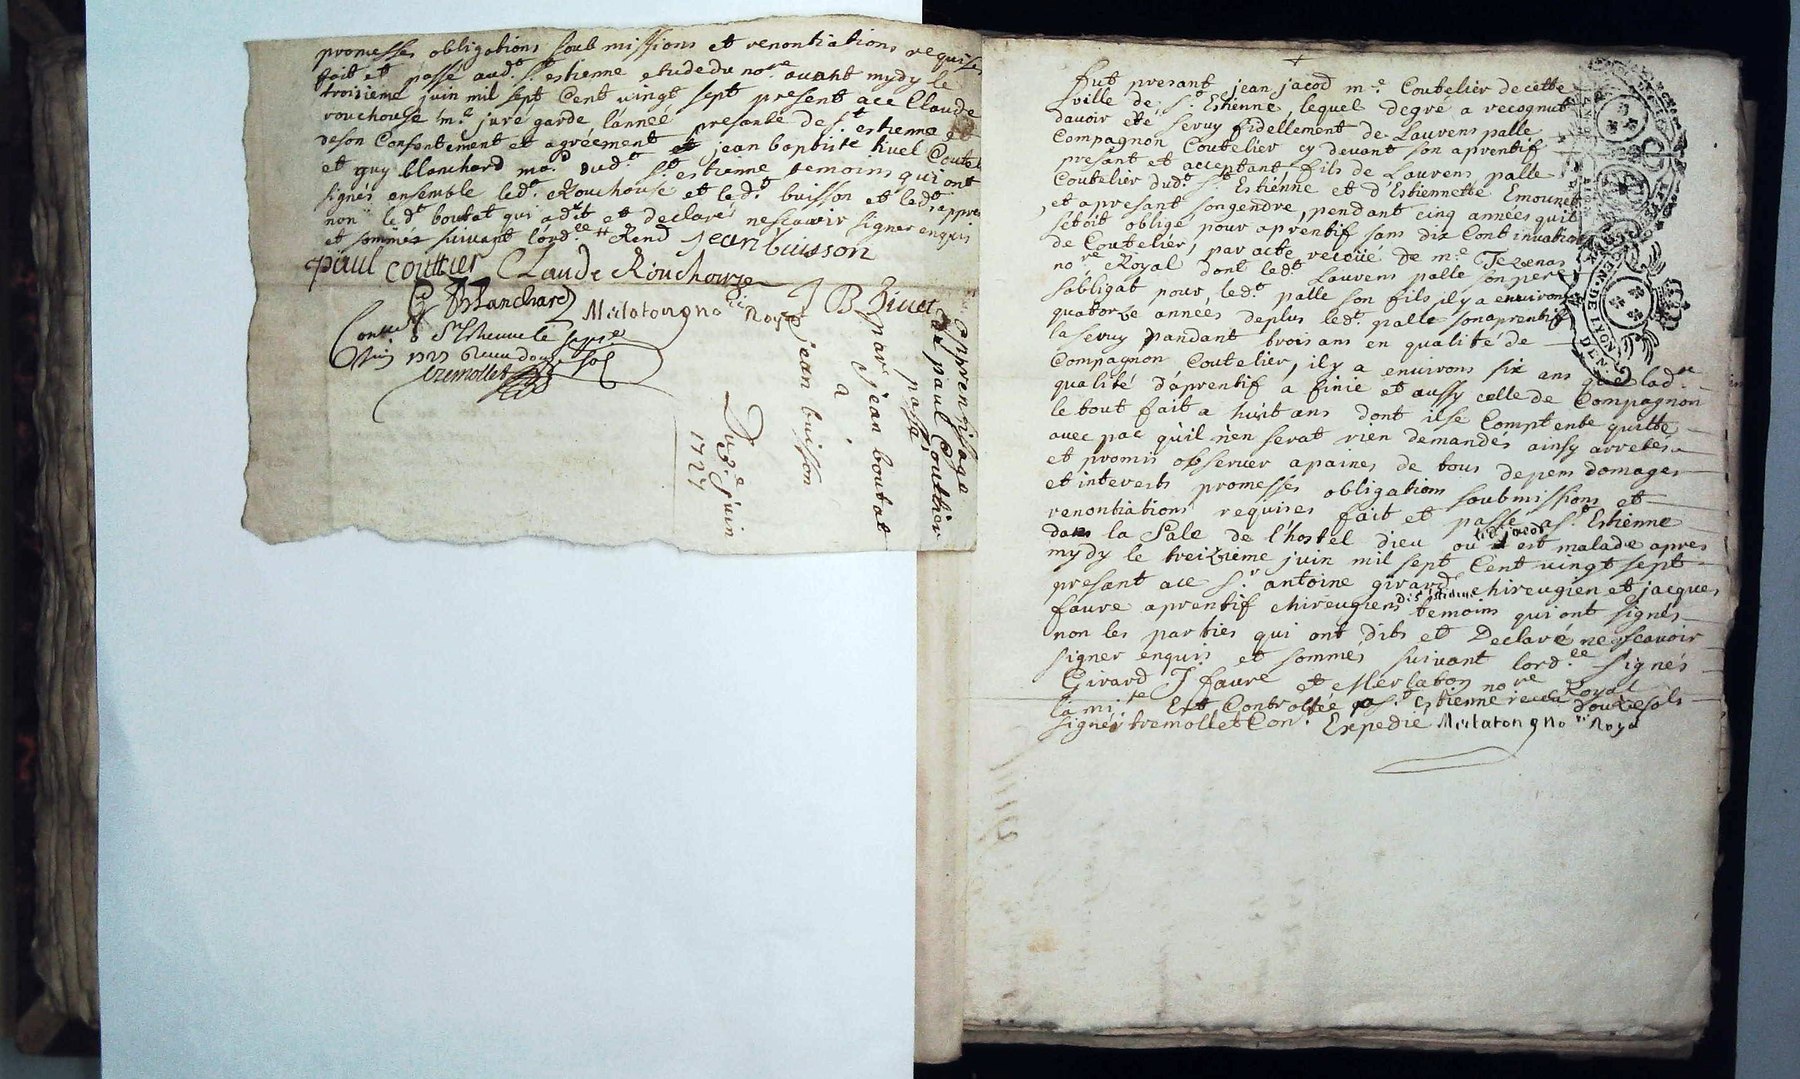 promesses obligations soubmissions et renontiations requises
fait et passé aud.t S.t estienne etude du no.re avant mydy le
troizieme juin mil sept Cent vingt sept present ace Claude
rouchouse m.e juré garde lánneé presante de S.t estienne et
deson Consentement et agréement et jean baptiste hivel Coutel
et guy blanchard ma.d dud.t S.t estienne temoins qui ont
signés ensemble led.t Rouchouse et led.t buisson et led.t appren
non led.t boutat qui a dit et declaré nescavoir signer enquis
et sommés suivant lórd.ce
jean buisson
paul couttier Claude Rouchouze
Blanchard Merlatongno.re Roya
Con.lle a S.t Estienne le
jean buisson
a
par jean boutat
passé
de paul Couttier
apprentissage
Du 3.e juin
1727
fut presant jean jacod m.e Coutelier de cette
ville de S.t Estienne lequel degré a recognut
davoir eté servy fidellement de Laurens palle
Compagnon Coutelier cy devant son aprentif
presant et acceptant, fils de Laurens palle
Coutelier dud.t S.t Estienne et d'Estiennette Emounet
et apresant songendre, pendant cinq années quil
sétoit obligé pour aprentif sans dix Continuation
de Coutelier, par acte receüe de m.e Tezenas
no.re Royal dont led.t Laurens palle son pere
sobligat pour led.t palle son fils il y a environ
quatorze années deplus led.t palle son aprentif
la servy pandant trois ans en qualité de
Compagnon Coutelier, il y a environs six ans
qualité dáprentif a finie et aussy celle de Compagnon
le tout fait a huit ans dont il se Comptente quitte
avec pac qu'il nen serat rien demandés ainsy arretés
et promis observer apaines de tous depens domages
et interests promesses obligations soubmissions et
renontiations requises fait et passé a S.t Estienne
dans la Sale de l'hostel dieu ou led. jacod est malade apres
mydy le treizieme juin mil sept Cent vingt sept
presant ace S.r antoine girard chireugien et jacques
faure aprentif chireugiens de S.t Estienne temoins qui ont signés
non les parties qui ont dits et Declaré ne scavoir
signer enquis et sommés suivant lord.ce signés
Girard J faure et Merlaton no.re Royal
la mi.te Est Controllée a S.t estienne receu douze sols
signés tremollet Con.r Expedié Merlatongno.re Roya
GEN · DE LYON